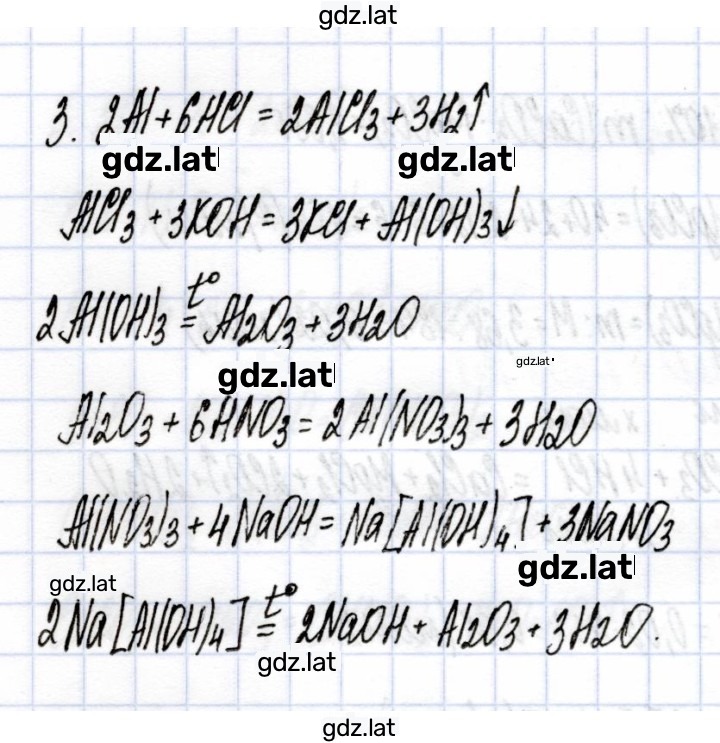 gdz.lat
3. 2Al + 6HCl = 2AlCl₃ + 3H₂↑
gdz.lat gdz.lat
AlCl₃ + 3KOH = 3KCl + Al(OH)₃↓
2Al(OH)₃ =t° Al₂O₃ + 3H₂O
gdz.lat gdz.lat
Al₂O₃ + 6HNO₃ = 2Al(NO₃)₃ + 3H₂O
Al(NO₃)₃ + 4NaOH = Na[Al(OH)₄] + 3NaNO₃
gdz.lat gdz.lat
2Na[Al(OH)₄] =t° 2NaOH + Al₂O₃ + 3H₂O.
gdz.lat
gdz.lat